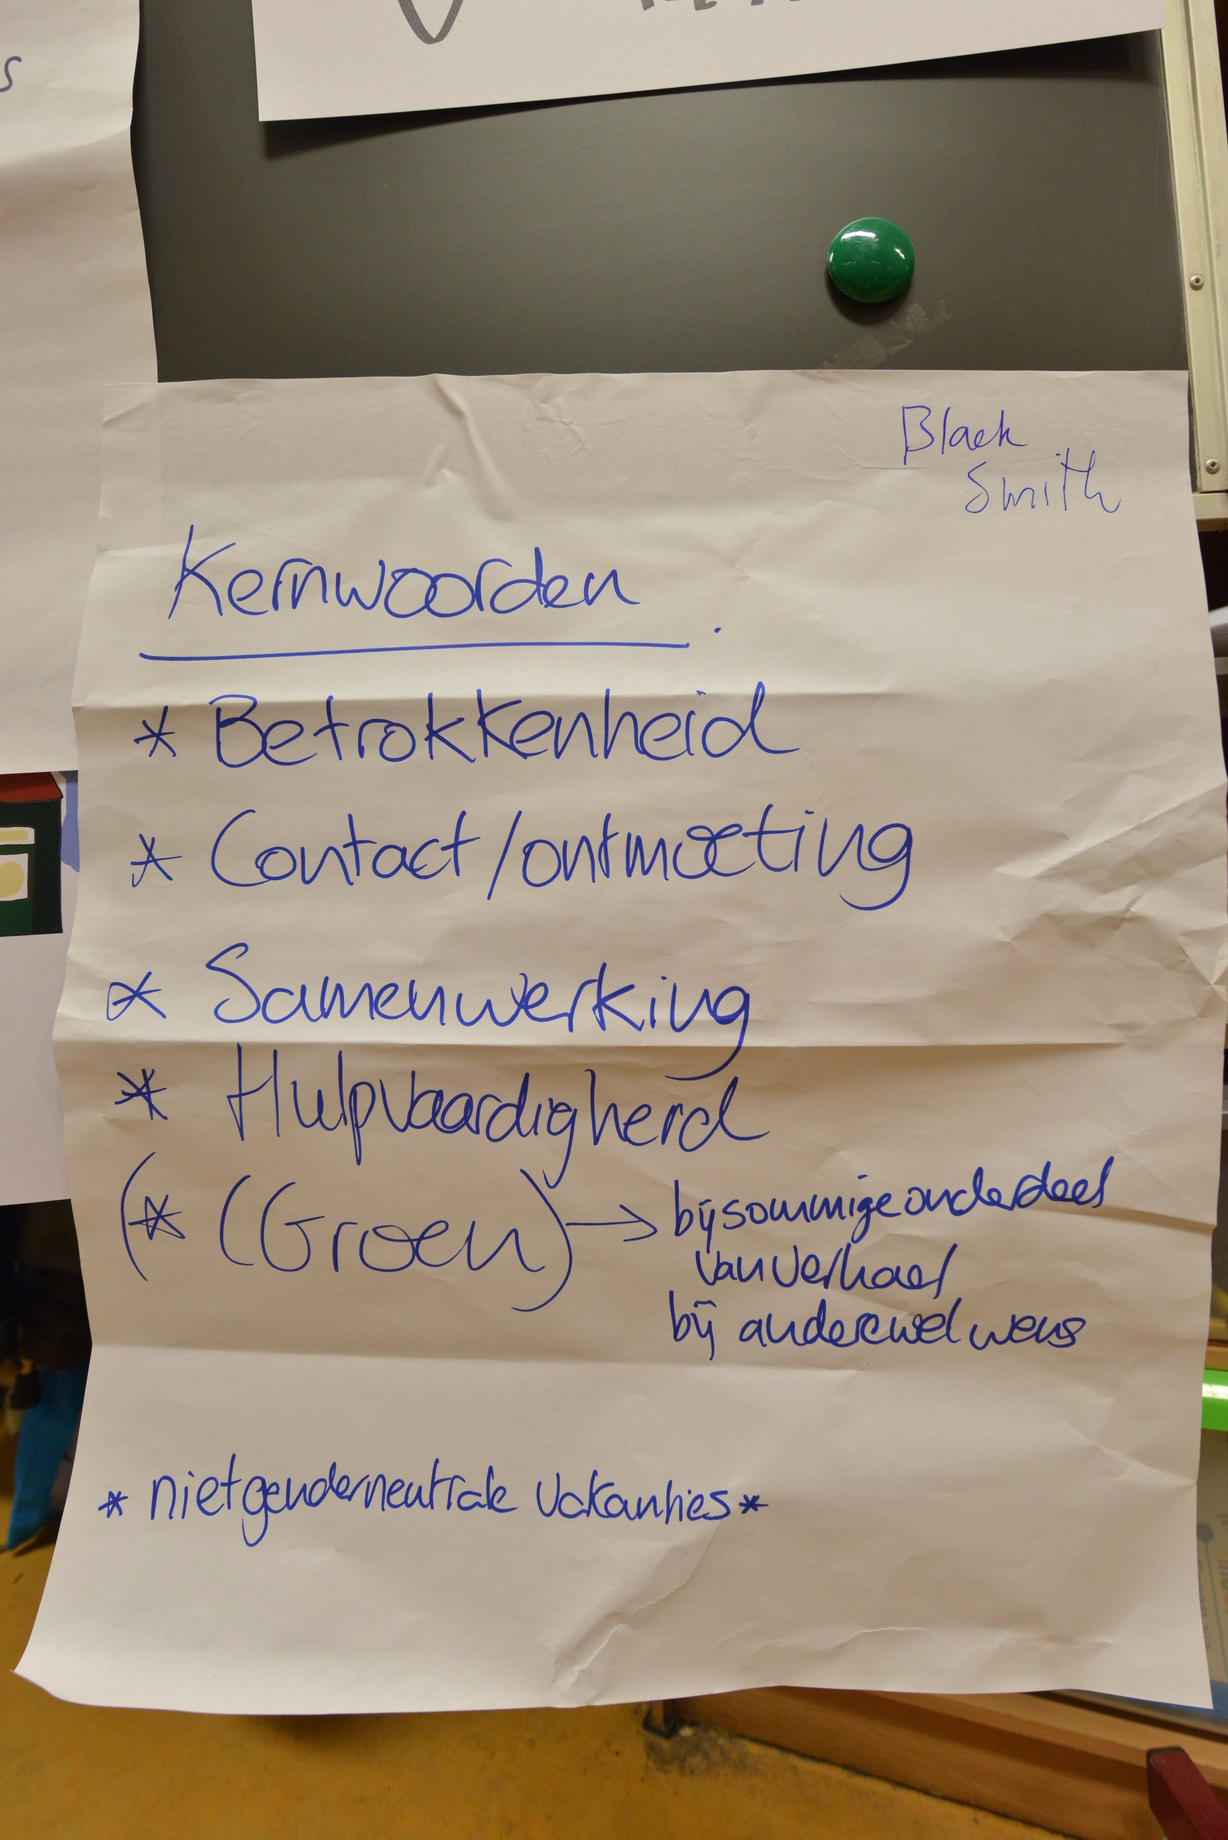 Black
Smith
Kernwoorden
* Betrokkenheid
* Contact/ontmoeting
* Samenwerking
* Hulpvaardigheid
(* (Groen) → bij sommige onderdeel
van verhaal
bij andere wel wens
* niet genderneutrale vakanties *